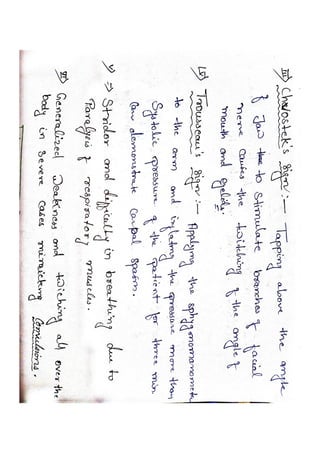 III) Chvostek's Sign :- Tapping above the angle
of Jaw to stimulate branches of facial
nerve causes the twitching of the angle of
mouth and eyelids.
IV) Trousseau's Sign :- Applying the sphygmomanomete
to the arm and inflating the pressure more than
Systolic pressure of the patient for three min
can demonstrate Carpal Spasm.
V) ⇒ Stridor and difficulty in breathing due to
Paralysis of respiratory muscles.
VI) Generalized Weakness and twiching all over the
body in severe cases mimicking Convulsions.